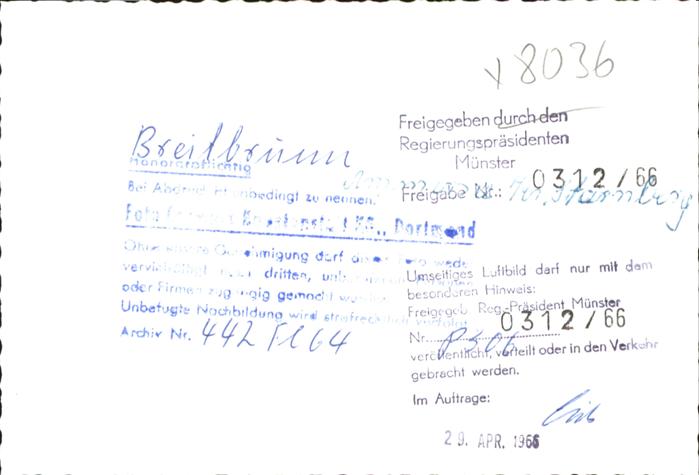 8036
Breitbrunn
Honorarpflichtig
Bei Abdruck ist unbedingt zu nennen:
Ammersee Kr. Starnberg
KG., Dortmund
Ohne unsere Genehmigung darf
oder Firmen zugängig gemacht werden
Unbefugte Nachbildung wird strafrechtlich verfolgt
Archiv Nr. 442 Fl 64
Freigegeben durch den
Regierungspräsidenten
Münster
Freigabe Nr.: 0312/66
Umseitiges Luftbild darf nur mit dem
besonderen Hinweis:
Freigegeb. Reg.-Präsident Münster
Nr. 0312/66
veröffentlicht, verteilt oder in den Verkehr
gebracht werden.
Im Auftrage:
29. APR. 1966